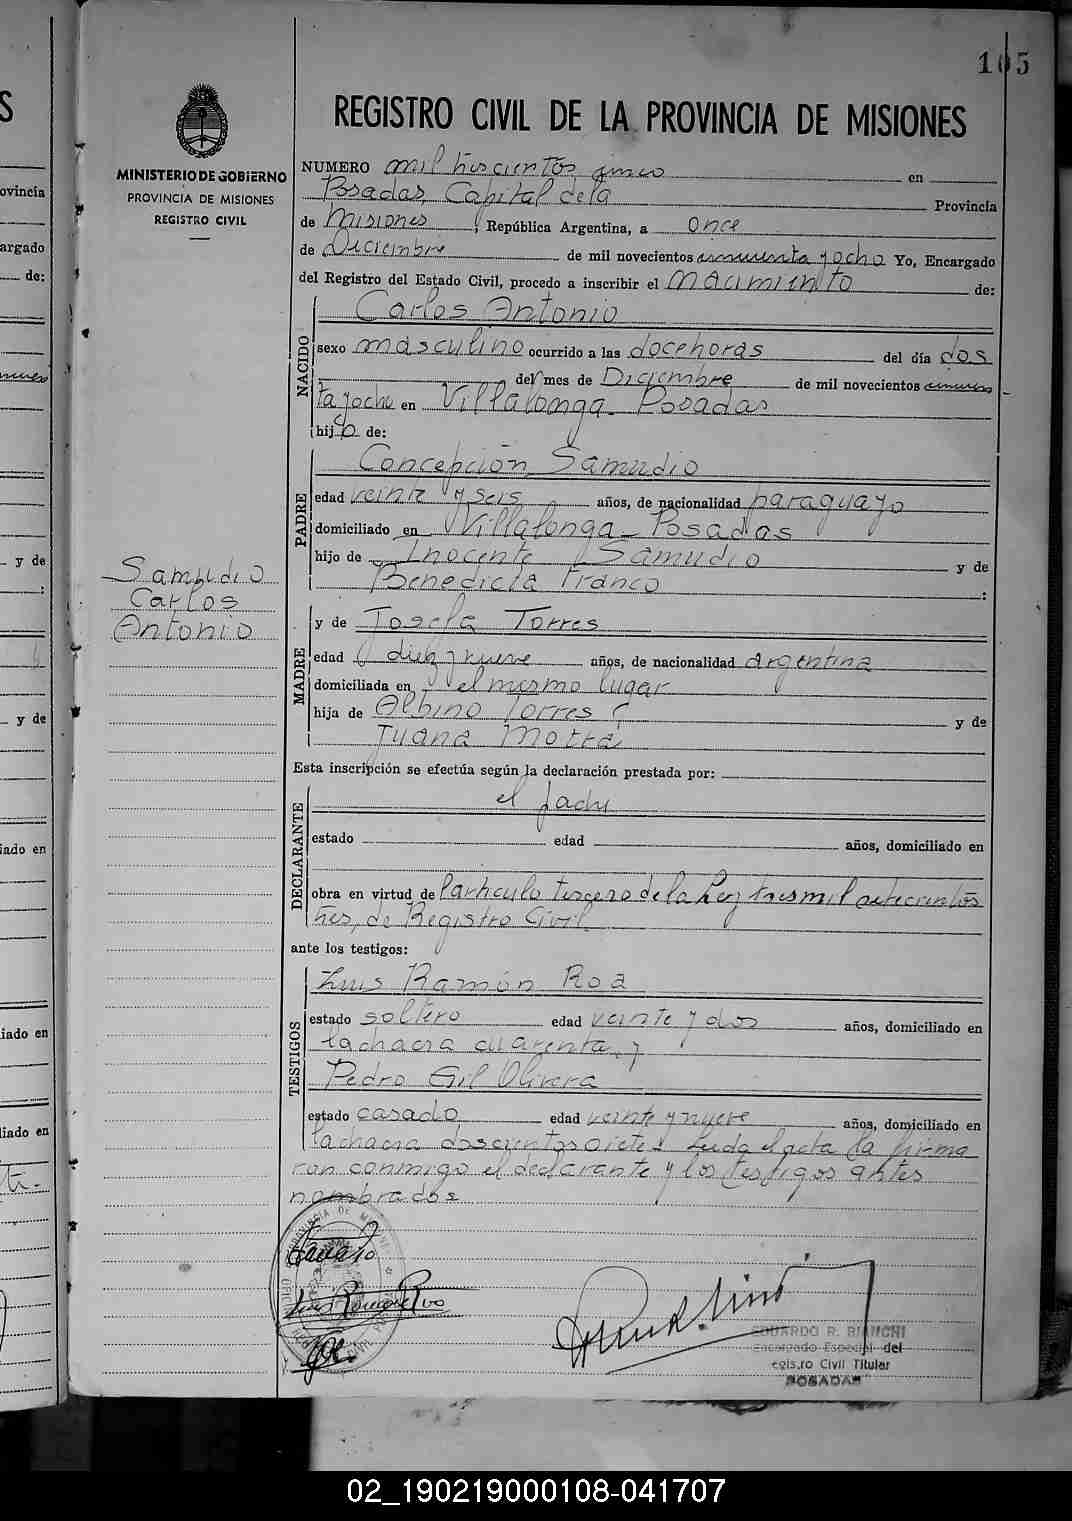 105
REGISTRO CIVIL DE LA PROVINCIA DE MISIONES
MINISTERIO DE GOBIERNO
PROVINCIA DE MISIONES
REGISTRO CIVIL
NUMERO mil trescientos cinco en
Posadas, Capital de la Provincia
de Misiones, República Argentina, a once
de Diciembre de mil novecientos cincuenta y ocho Yo, Encargado
del Registro del Estado Civil, procedo a inscribir el nacimiento de:
NACIDO
Carlos Antonio
sexo masculino ocurrido a las doce horas del día dos
del mes de Diciembre de mil novecientos cincuen
ta y ocho en Villalonga - Posadas
hijo de:
PADRE
Concepción Samudio
edad veinte y seis años, de nacionalidad paraguayo
domiciliado en Villalonga - Posadas
hijo de Inocente Samudio y de
Benedicta Franco :
Samudio
Carlos
Antonio
MADRE
y de Josefa Torres
edad diez y nueve años, de nacionalidad argentina
domiciliada en el mismo lugar
hija de Albino Torres y de
Juana Motta
Esta inscripción se efectúa según la declaración prestada por:
DECLARANTE
el padre
estado edad años, domiciliado en
obra en virtud del articulo tercero de la Ley tres mil setecientos
tres, de Registro Civil
ante los testigos:
TESTIGOS
Luis Ramón Roa
estado soltero edad veinte y dos años, domiciliado en
la chacra cuarenta y
Pedro Gil Olivera
estado casado edad veinte y nueve años, domiciliado en
la chacra doscientos siete. Leida el acta la firma
ron conmigo el declarante y los testigos antes
nombrados
EDUARDO R. BIANCHI
Encargado Especial del
egis.ro Civil Titular
POSADAS
02_190219000108-041707